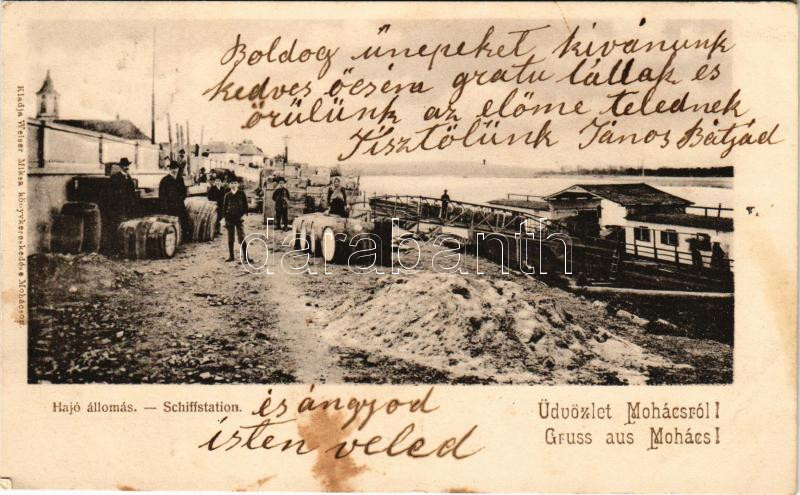 Boldog ünepeket kivánunk
kedves öcsém gratu lállak es
örülünk az elöme telednek
Tisztölünk János Bátjád
Kiadja Weiser Miksa könyvkereskedése Mohácson
darabanth
Hajó állomás. — Schiffstation.
Üdvözlet Mohácsról!
Gruss aus Mohács!
és ángyod
isten veled